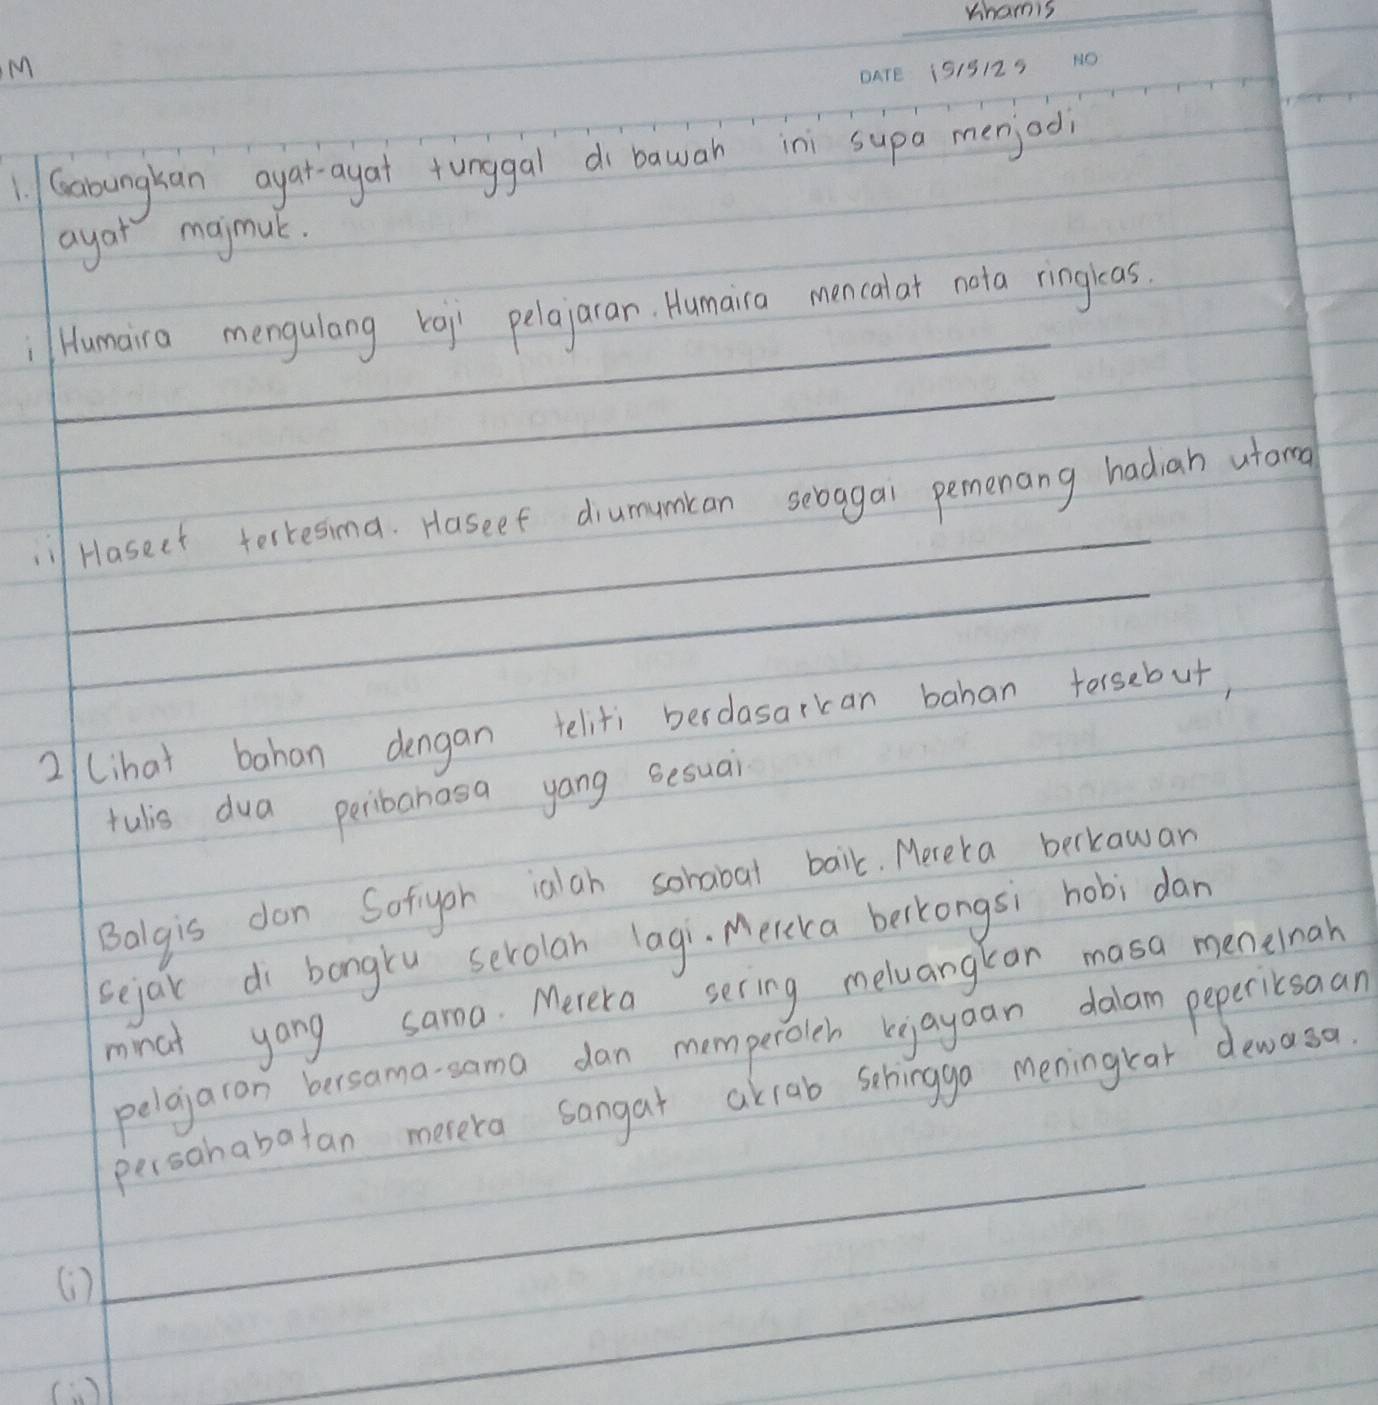 Khamis
M
DATE 15/5/25 NO
1. Gabungkan ayat-ayat tunggal di bawah ini supa menjadi
ayat majmuk.
i Humaira mengulang kaji pelajaran. Humaira mencatat nota ringkas.
ii Haseef terkesima. Haseef diumumkan sebagai pemenang hadiah utama
2 Lihat bahan dengan teliti berdasarkan bahan tersebut,
tulis dua peribahasa yang sesuai
Balqis dan Sofiyah ialah sahabat baik. Mereka berkawan
sejak di bangku sekolah lagi. Mereka berkongsi hobi dan
minat yang sama. Mereka sering meluangkan masa menelnah
pelajaran bersama-sama dan memperoleh kejayaan dalam peperiksaan
persahabatan mereka sangat akrab sehingga meningkat dewasa.
(i)
(ii)